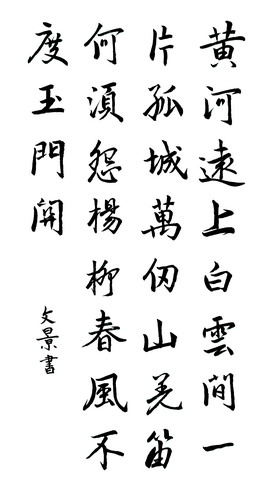 黄河遠上白雲間一
片孤城萬仞山羌笛
何須怨楊柳春風不
度玉門開
文景書